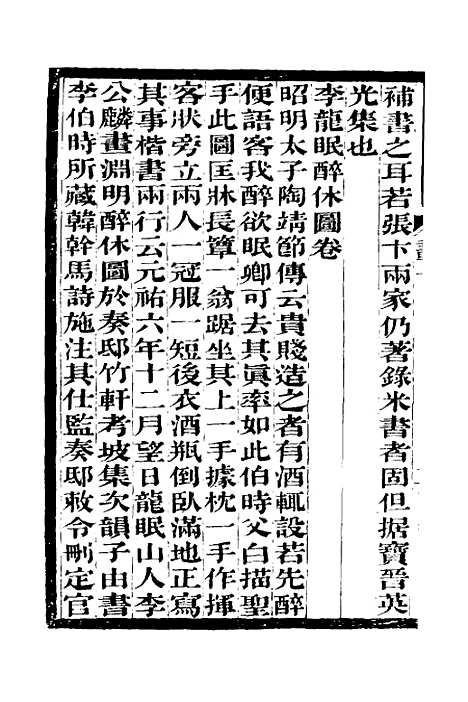 補書之耳若張卞兩家仍著錄米書者固但据寶晉英
光集也
李龍眠醉休圖卷
昭明太子陶靖節傳云貴賤造之者有酒輒設若先醉
便語客我醉欲眠卿可去其眞率如此伯時父白描聖
手此圖匡牀長簟一翁踞坐其上一手據枕一手作揮
客狀旁立兩人一冠服一短後衣酒瓶倒臥滿地正寫
其事楷書兩行云元祐六年十二月望日龍眠山人李
公麟畫淵明醉休圖於奏邸竹軒考坡集次韻子由書
李伯時所藏韓幹馬詩施注其仕監奏邸敕令刪定官